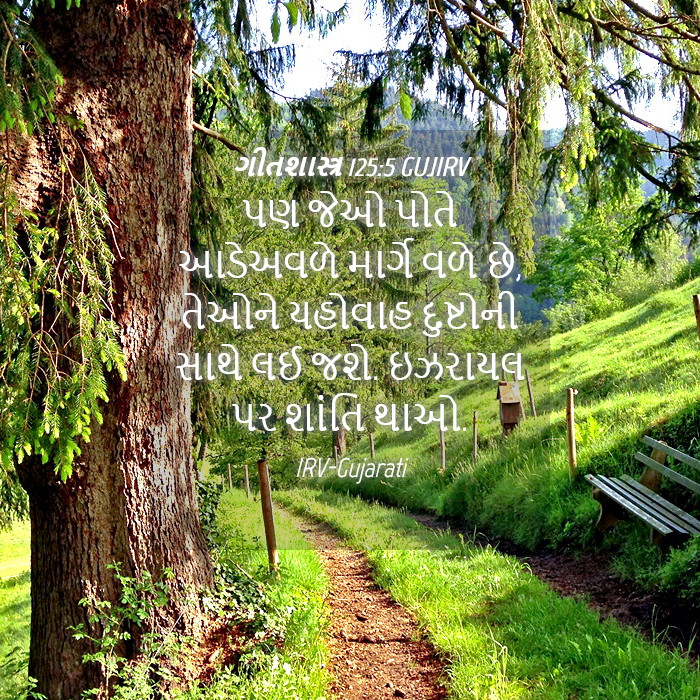 ગીતશાસ્ત્ર 125:5 GUJIRV
પણ જેઓ પોતે
આડેઅવળે માર્ગે વળે છે,
તેઓને યહોવાહ દુષ્ટોની
સાથે લઈ જશે. ઇઝરાયલ
પર શાંતિ થાઓ.
IRV-Gujarati